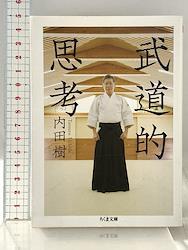 武道的
思考
内田樹
ちくま文庫